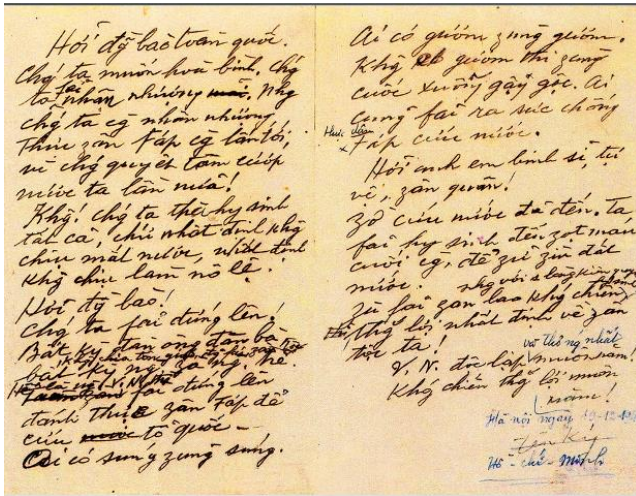 Hỡi đg̃ bào toàn quốc.
Chǵ ta muốn hoà bình. Chǵ
ta fải nhân nhượng. Nhg
chǵ ta cg̃ nhân nhượng
thực zân Fáp cg̃ lấn tới,
vì chǵ quyết tâm cướp
nước ta lần nữa!
Khg! Chǵ ta thà hy sinh
tất cả, chứ nhất định khg
chịu mất nước, nhất định
khg chịu làm nô lệ.
Hỡi đg̃ bào!
Chǵ ta fải đứng lên!
Bất kỳ đàn ông đàn bà
bất kỳ ng già ng trẻ.
Hễ là ng V.N. thì
fải đứng lên
đánh thực zân Fáp để
cứu tổ quốc -
Ai có súng zùng súng.
Ai có gươm zùng gươm.
Khg có gươm thì zùng
cuốc xuổng gậy gộc. Ai
cũng fải ra sức chống
Fáp cứu nước.
Hỡi anh em binh sĩ, tự
vệ, zân quân!
Zờ cứu nước đã đến. Ta
fải hy sinh đến zọt máu
cuối cg̀, để zữ zìn đất
nước.
Zù fải zan lao khǵ chiến
thg̃ lợi nhất định về zân
tộc ta!
và thống nhất
V. N. độc lập muôn năm!
Khǵ chiến thg̃ lợi muôn
năm!
Hà nội ngày 19-12-
Hồ-chí-Minh